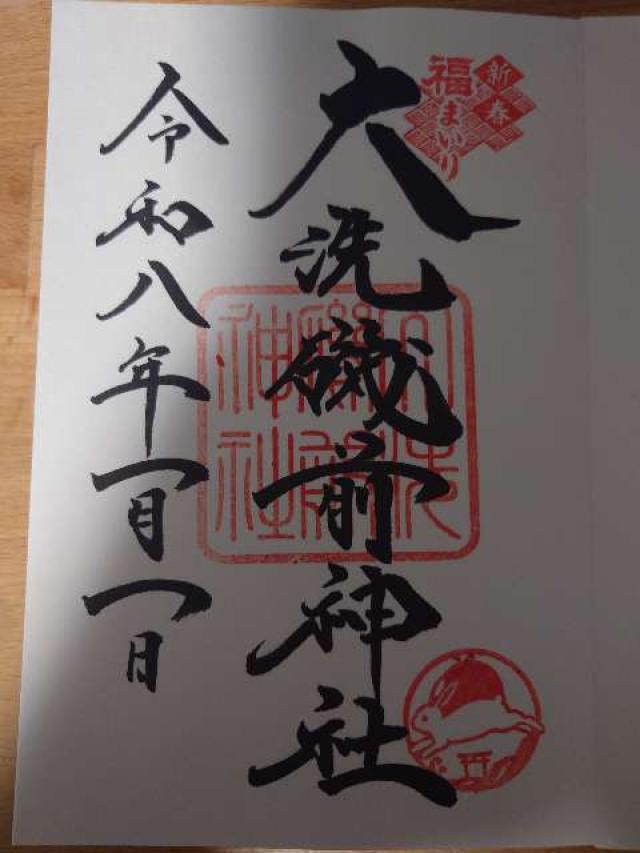 新春
福まいり
大洗磯前神社
大洗磯前神社
令和八年一月一日